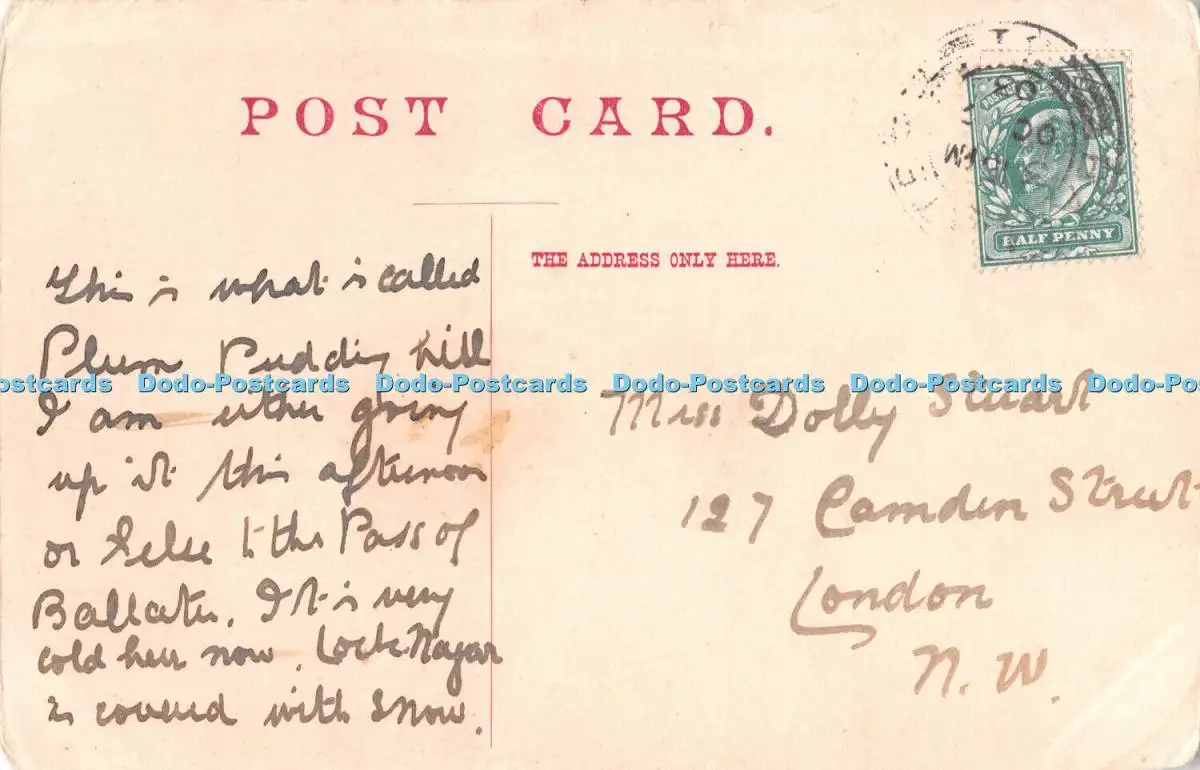 POST CARD.
HALF PENNY
THE ADDRESS ONLY HERE.
This is what is called
Plum Pudding hill
I am either going
up it this afternoon
or else to the Pass of
Ballater. It is very
cold here now. Loch Nagar
is covered with snow.
Dodo-Postcards Dodo-Postcards Dodo-Postcards Dodo-Postcards
Miss Dolly Stuart
127 Camden Street
London
N.W.